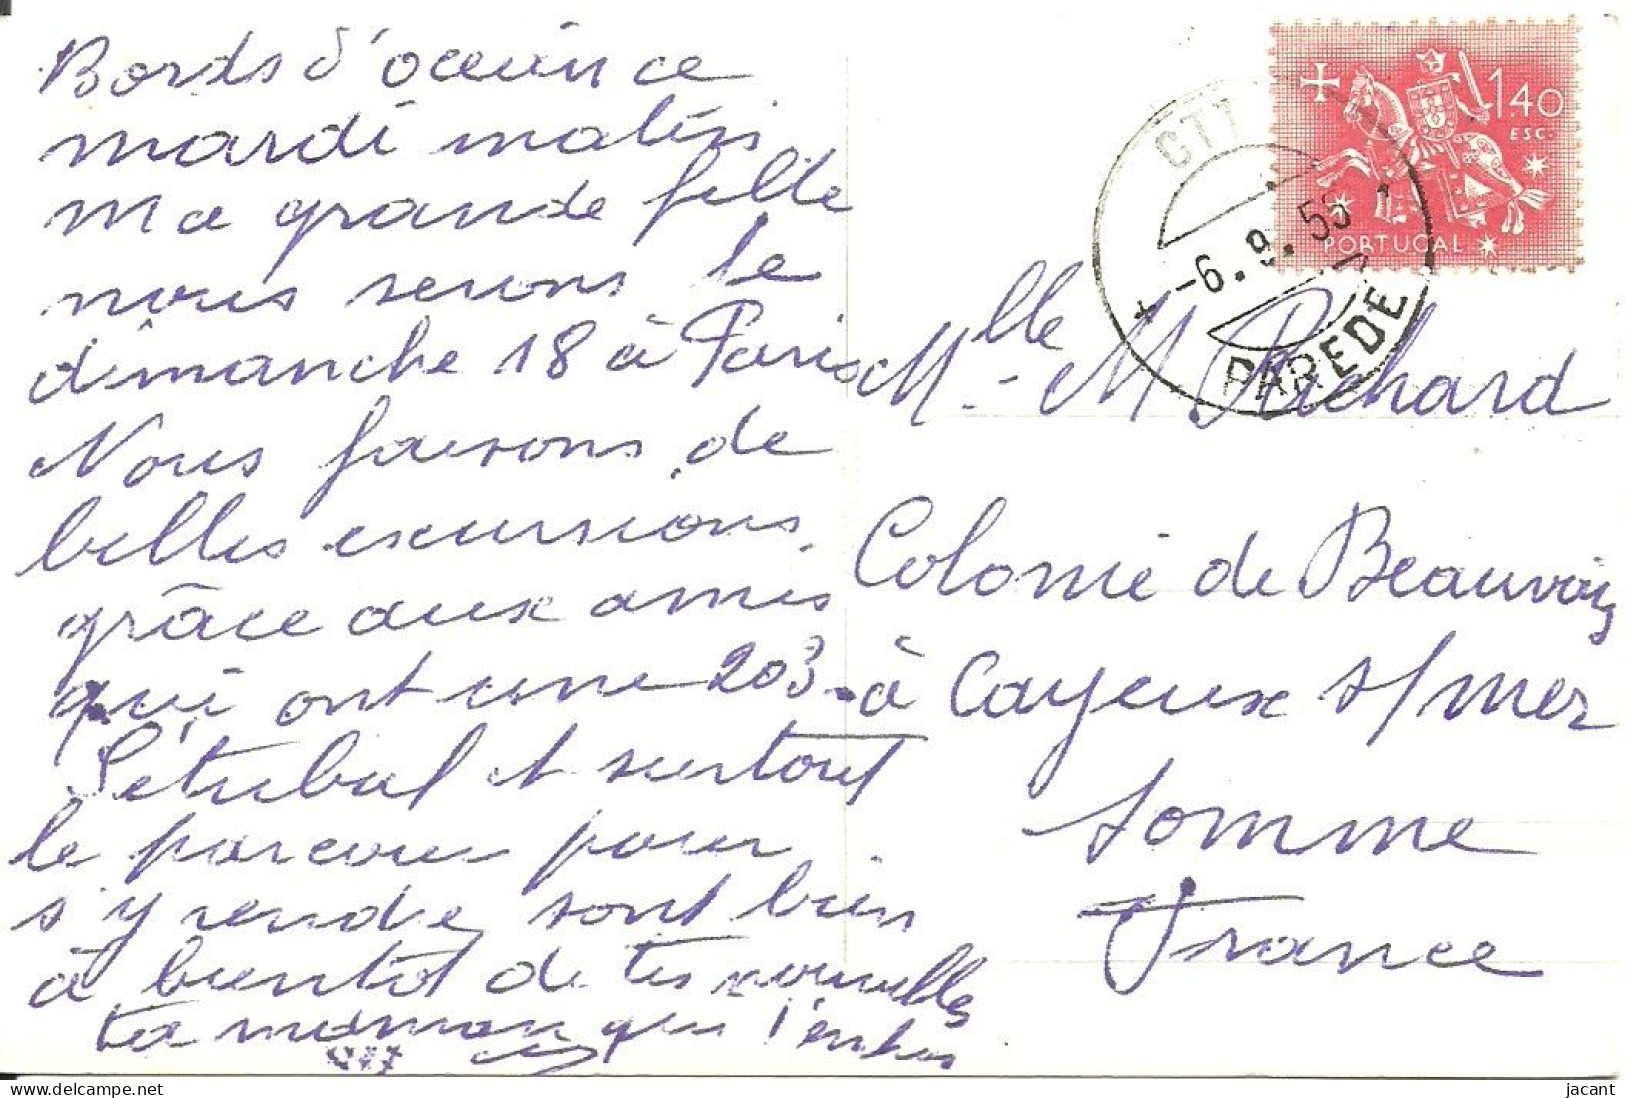 Bords d'océan ce
mardi matin
Ma grande fille
nous serons le
dimanche 18 à Paris
Nous faisons de
belles excursions
grâce aux amis
qui ont une 203.
Sétubal et surtout
le parcours pour
s'y rendre sont bien
à bientôt de tes nouvelles
ta maman qui t'embras
1$40
ESC.
PORTUGAL
CTT
-6.9.55
PAREDE
Mlle M Rachard
Colonie de Beauvais
à Cayeux s/mer
Somme
France
jacant